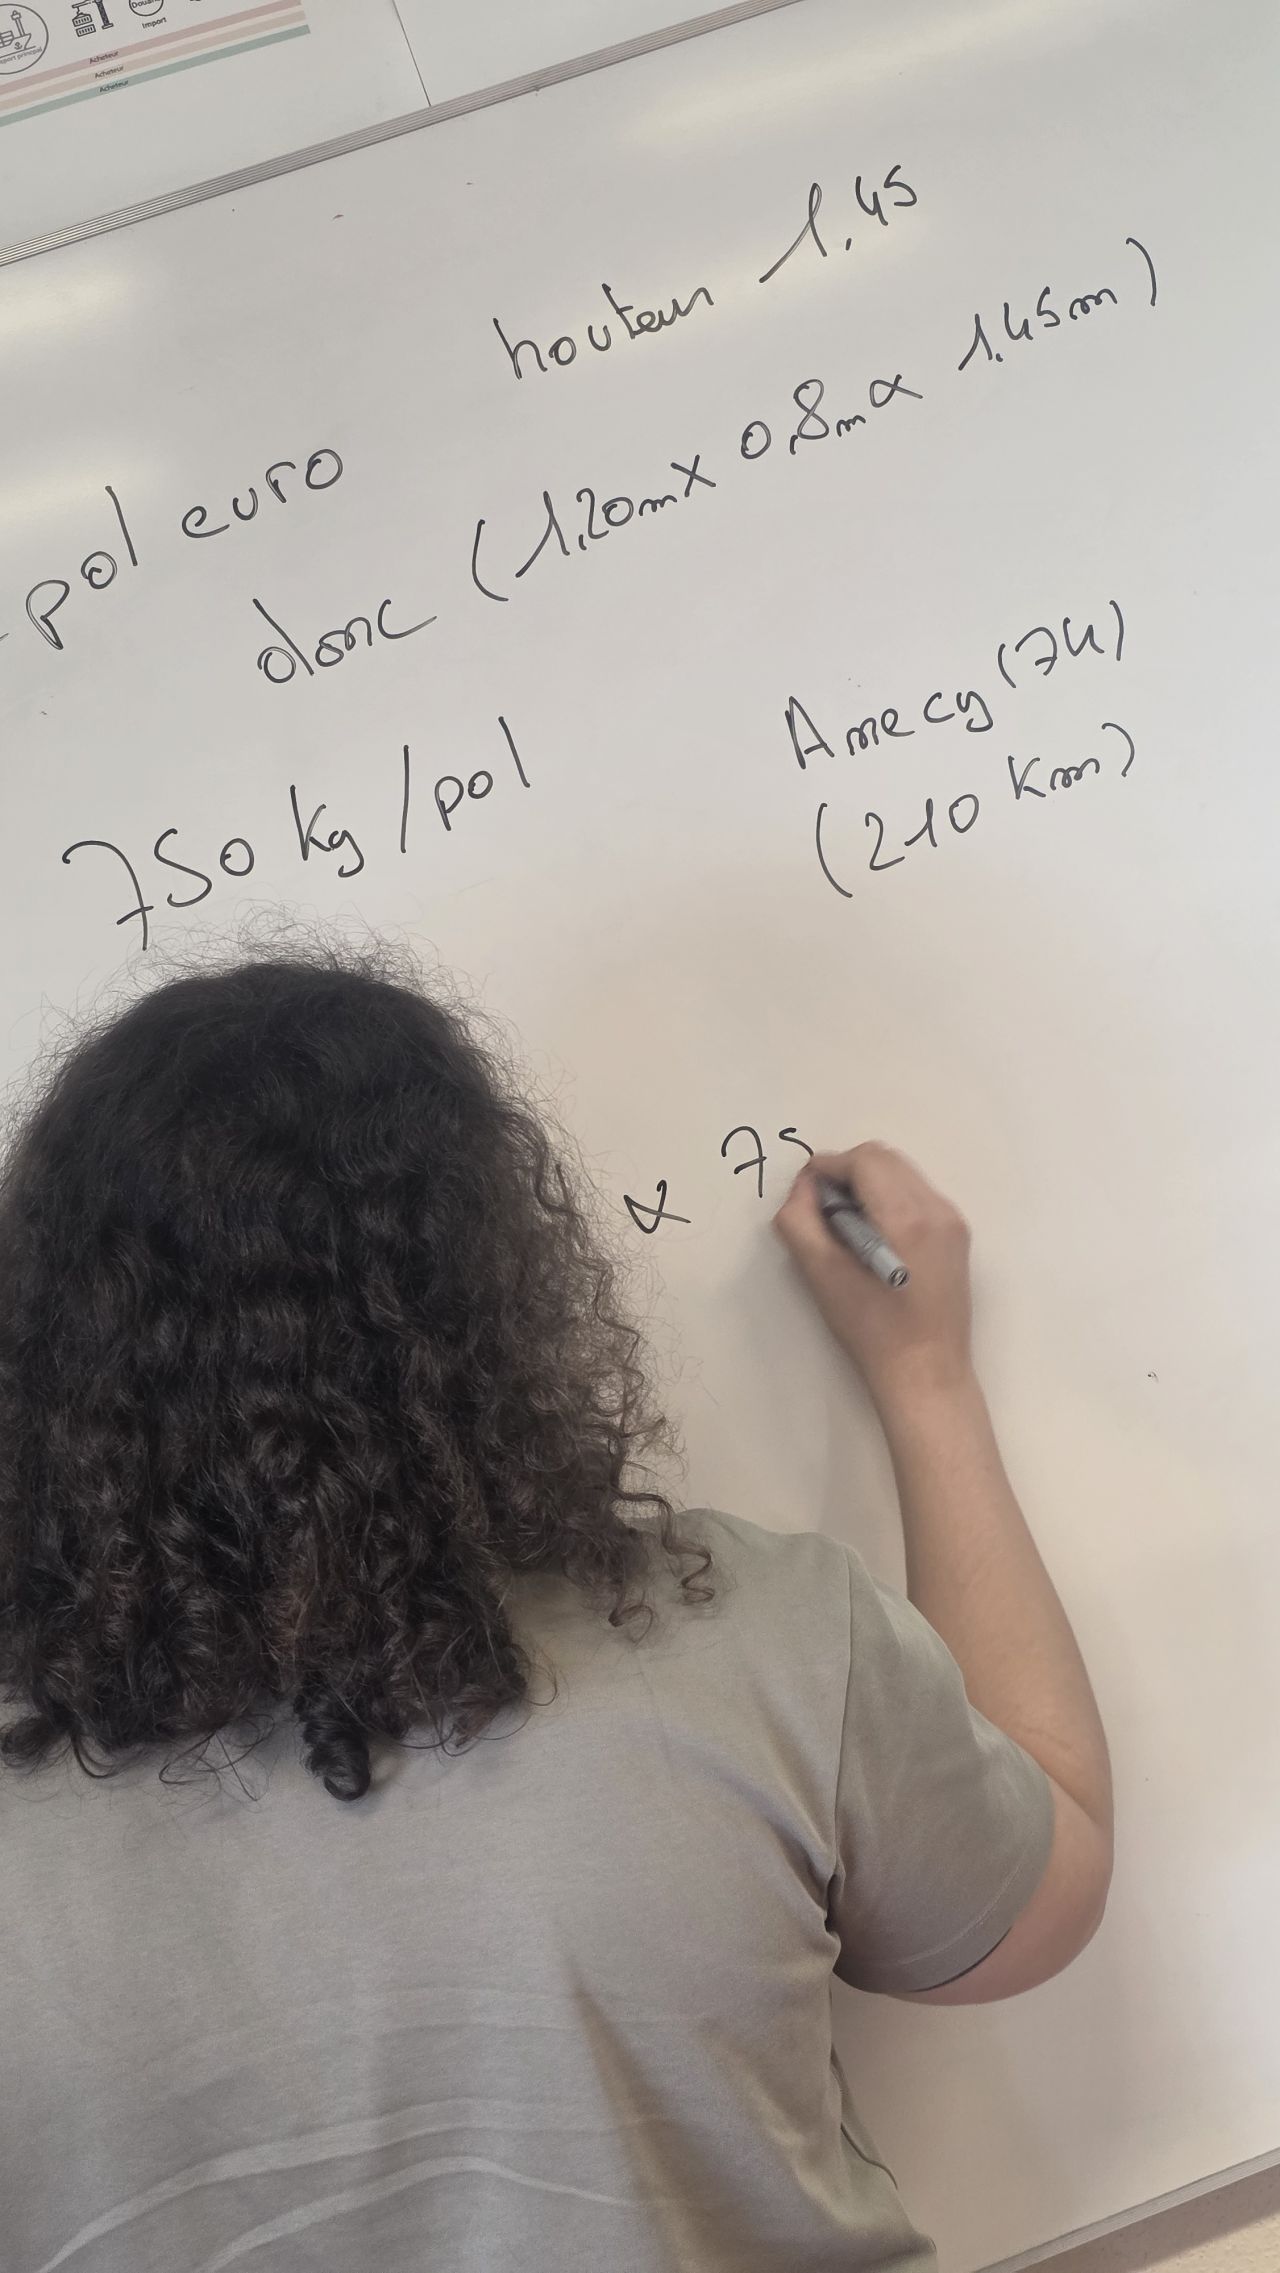 Import
Acheteur
Acheteur
Acheteur
hauteur 1.45
pal euro
donc (1,20m x 0,8m x 1.45m)
Annecy (74)
750 kg/pal
(210 km)
x 75